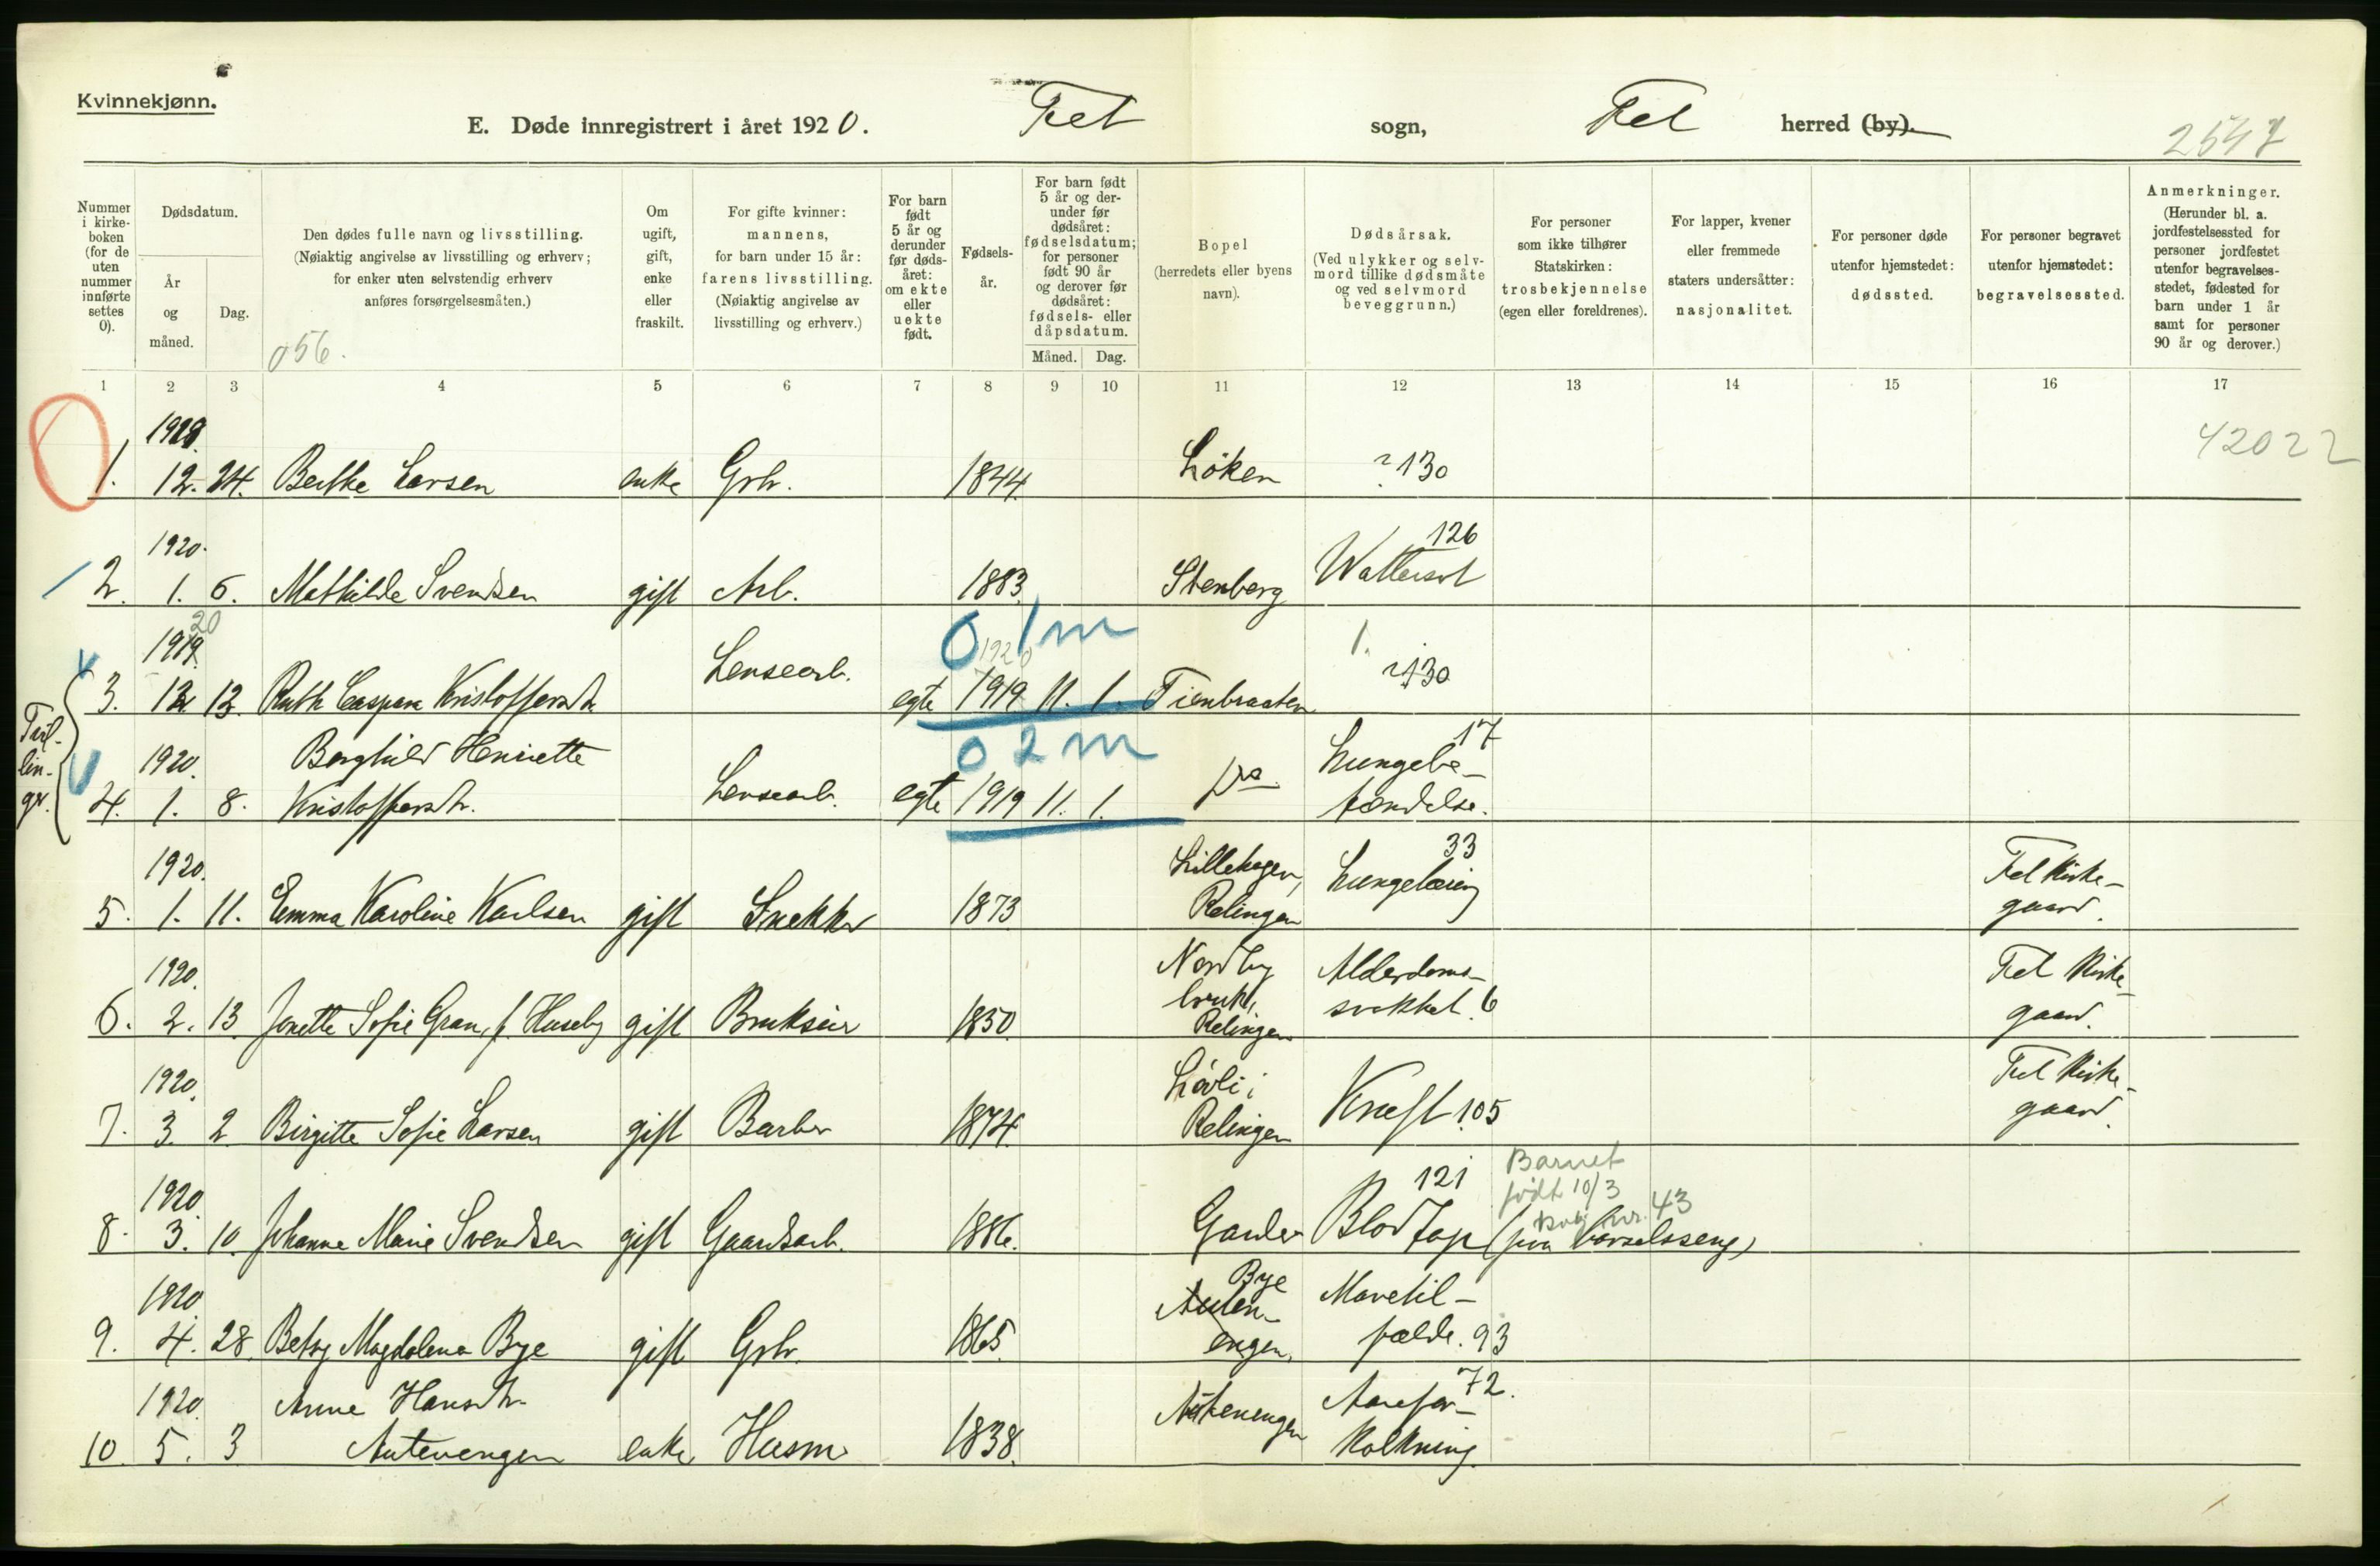 Kvinnekjønn.
E. Døde innregistrert i året 1920. Fet sogn, Fet herred (by).
2547
Nummer i kirke-boken (for de uten nummer innførte settes 0).
Dødsdatum.
År og måned.
Dag.
Den dødes fulle navn og livsstilling.
(Nøiaktig angivelse av livsstilling og erhverv;
for enker uten selvstendig erhverv
anføres forsørgelsesmåten.)
056.
Om ugift, gift, enke eller fraskilt.
For gifte kvinner: mannens, for barn under 15 år: farens livsstilling. (Nøiaktig angivelse av livsstilling og erhverv.)
For barn født 5 år og derunder før døds-året: om ekte eller uekte født.
Fødsels-år.
For barn født 5 år og der-under før dødsåret: fødselsdatum; for personer født 90 år og derover før dødsåret: fødsels- eller dåpsdatum.
Måned. Dag.
Bopel (herredets eller byens navn).
Dødsårsak. (Ved ulykker og selv-mord tillike dødsmåte og ved selvmord beveggrunn.)
For personer som ikke tilhører Statskirken: trosbekjennelse (egen eller foreldrenes).
For lapper, kvener eller fremmede staters undersåtter: nasjonalitet.
For personer døde utenfor hjemstedet: dødssted.
For personer begravet utenfor hjemstedet: begravelsessted.
Anmerkninger. (Herunder bl. a. jordfestelsessted for personer jordfestet utenfor begravelses-stedet, fødested for barn under 1 år samt for personer 90 år og derover.)
1 2 3 4 5 6 7 8 9 10 11 12 13 14 15 16 17
42022
1. 12. 24. Berthe Larsen enke Grb. 1844. Løken ? 130
1920.
2. 1. 6. Mathilde Svendsen gift Arb. 1883 Stenberg Wattersot 126
0 1 m
20
1919.
1920
Tvil-
lin-
ger.
3. 12 12. Ruth Caspara Kristoffersdtr. Lensearb. egte 1919 11. 1. Tienbraaten ? 130
1.
0 2 m
1920.
Borghild Henriette
4. 1. 8. Kristoffersdtr. Lensearb. egte 1919 11. 1. Do Lungebe-
tændelse. 17
1920.
5. 1. 11. Emma Karoline Karlsen gift Snekker 1873 Lillehagen,
Relingen Lungetæring 33 Fet Kirke-
gaard.
1920.
6. 2. 13 Josette Sofie Gran, f. Huseby gift Brukseier 1850. Nordby
bruk,
Relingen Alderdoms-
svekket. 6 Fet Kirke-
gaard.
1920.
7. 3. 2 Birgitte Sofie Larsen gift Barber 1874. Løvli i
Relingen Kræft 105 Fet Kirke-
gaard.
Barnet
født 10/3
nr. 43
1920
8. 3. 10. Johanne Marie Svendsen gift Gaardsarb. 1886. Garder Blodtap (paa barselsseng) 121
1920.
9. 4. 28. Betsy Magdalena Bye gift Grb. 1865. Bye
engen. Mavetil-
fælde. 93
1920.
Anne Hansdtr.
10. 5. 3 Autenengen enke Husm 1838. Autenengen Aarefor-
kalkning. 72.